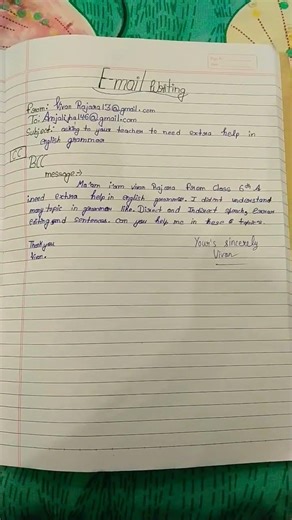 Email Writing
From: Viran Rajara13@gmail.com
To: Anjalijha146@gmail.com
Subject: asking to your teacher to need extra help in
english grammar
CC
BCC
message:→
Mam i'am Viran Rajara from Class 6th A
i need extra help in english grammar. I didn't understand
many topic in grammar like Direct and Indirect speech,
Editing and Sentences. Can you help me in these topics.
Thank you
Viran.
Your's sincerely
Viran